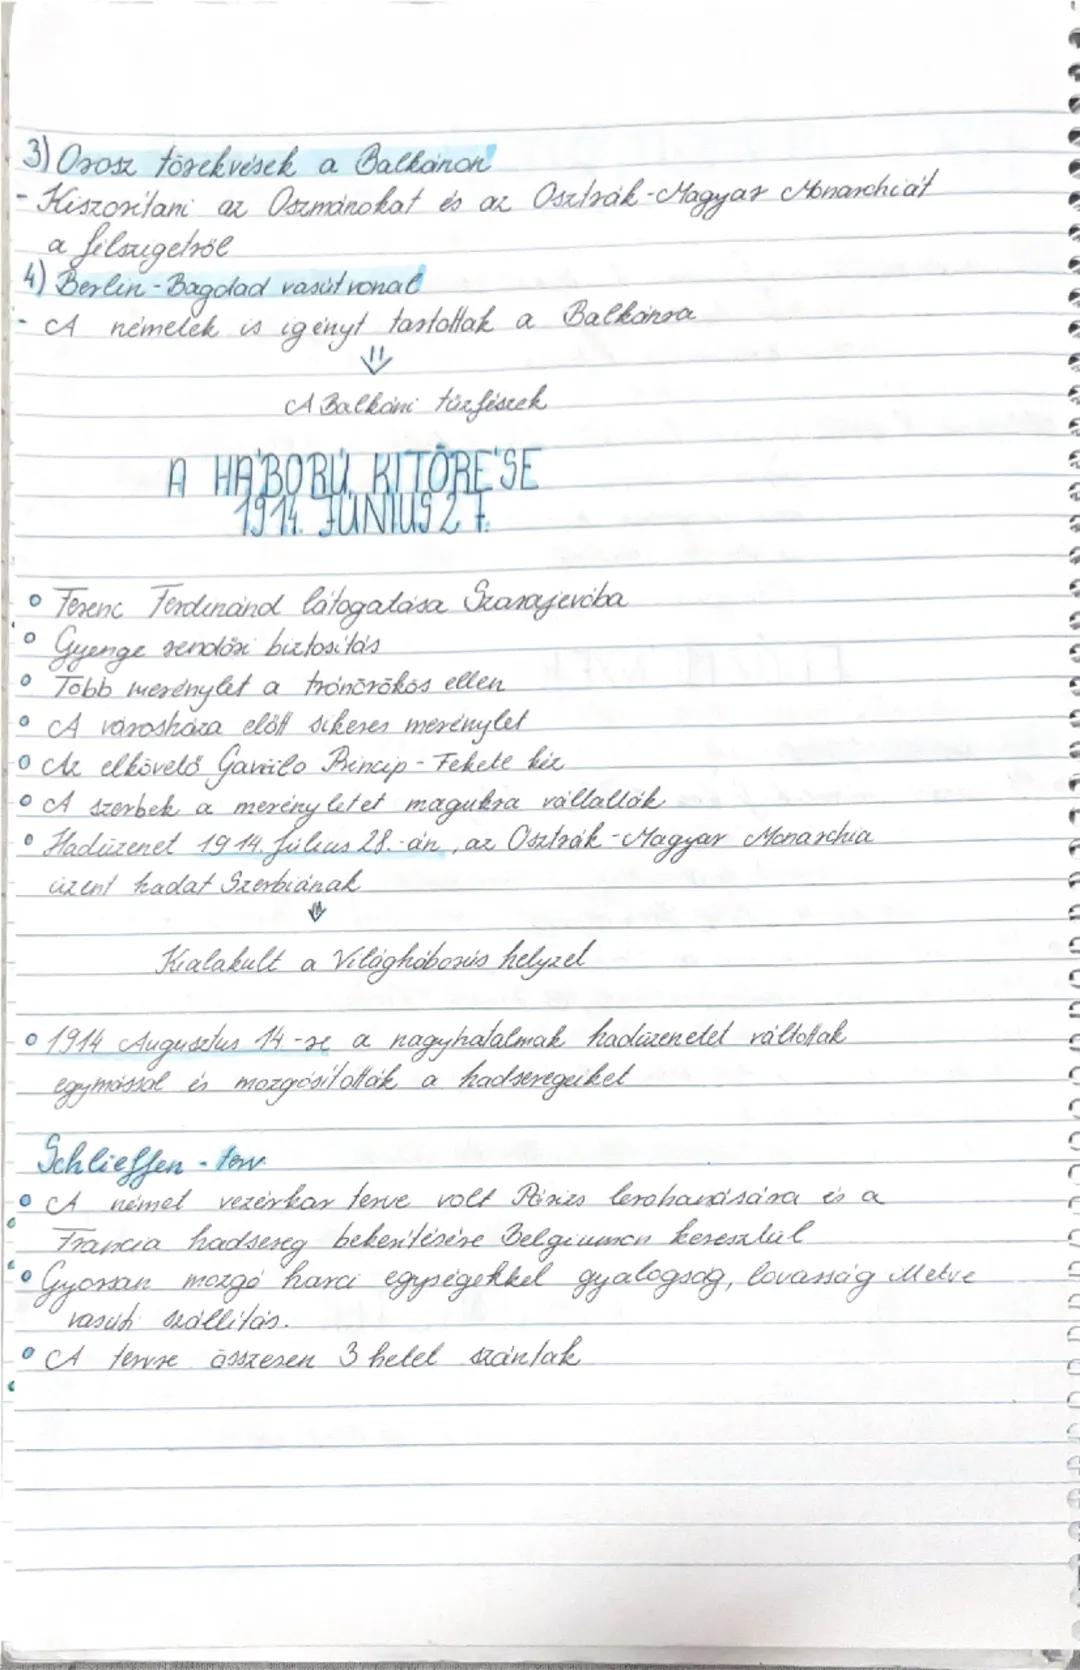 3) Orosz törekvések a Balkánon
- Kiszorítani az Oszmánokat és az Osztrák-Magyar Monarchiát
a félszigetről
4) Berlin-Bagdad vasútvonal
- A németek is igényt tartottak a Balkánra
⇓
A Balkáni tűzfészek
A HÁBORÚ KITÖRÉSE
1914. JÚNIUS 27.
° Ferenc Ferdinánd látogatása Szarajevóba
° Gyenge rendőri biztosítás
° Több merénylet a trónörökös ellen
° A városháza előtt sikeres merénylet
° Az elkövető Gavrilo Princip - Fekete kéz
° A szerbek a merényletet magukra vállalták
° Hadüzenet 1914. Július 28.-án, az Osztrák-Magyar Monarchia
üzent hadat Szerbiának
⇓
Kialakult a Világháborús helyzet
° 1914 Augusztus 14.-re a nagyhatalmak hadüzenetet váltottak
egymással és mozgósították a hadseregeiket
Schlieffen - terv
° A német vezérkar terve volt Párizs lerohanására és a
Francia hadsereg bekerítésére Belgiumon keresztül
° Gyorsan mozgó harci egységekkel gyalogság, lovasság illetve
vasúti szállítás.
° A tervre összesen 3 hetet szántak